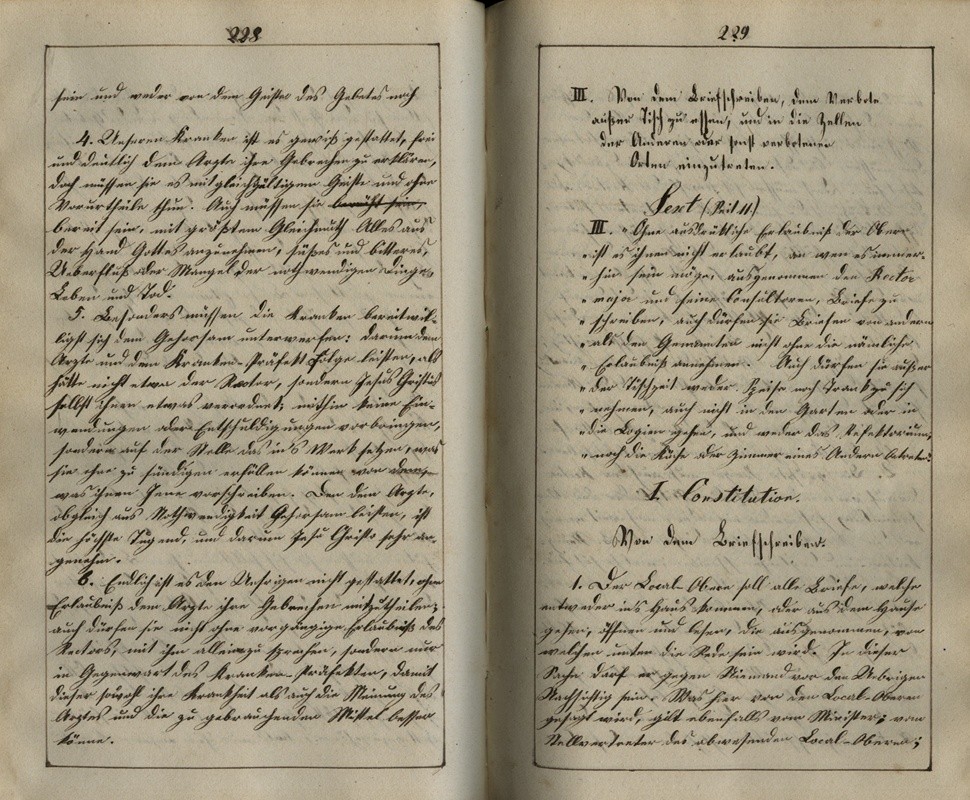 228
sein und weder von dem Geiste des Gebetes noch
4. Unseren Kranken ist es gewiß gestattet, frei
und deutlich dem Arzte ihre Gebrechen zu erklären,
doch müssen sie es mit gleichgültigem Geiste und ohne
Vorurtheile thun. Auch müssen sie bemüht sein,
bereit sein, mit größtem Gleichmuth Alles aus
der Hand Gottes anzunehmen, süßes und bitteres,
Ueberfluß oder Mangel der nothwendigen Dinge,
Leben und Tod.
5. Besonders müssen die Kranken bereitwil-
ligst sich dem Gehorsam unterwerfen: darum dem
Arzte und dem Kranken-Präfekt Folge leisten, als
hätte nicht etwa der Rector, sondern Jesus Christus
selbst ihnen etwas verordnet; mithin keine Ein-
wendungen oder Entschuldigungen vorbringen,
sondern auf der Stelle das in's Werk setzen, was
sie ohne zu sündigen erfüllen können von dem,
was ihnen Jene vorschreiben. Denn dem Arzte,
obgleich aus Nothwendigkeit Gehorsam leisten, ist
die höchste Tugend, und darum Jesu Christo sehr an-
genehm.
6. Endlich ist es den Unsrigen nicht gestattet, ohne
Erlaubniß dem Arzte ihre Gebrechen mitzutheilen;
auch dürfen sie nicht ohne vorgängige Erlaubniß des
Rectors, mit ihm allein zu sprechen, sondern nur
in Gegenwart des Kranken-Präfekten, damit
dieser sowohl ihre Krankheit als auch die Meinung des
Arztes und die zu gebrauchenden Mittel besser
könne.
229
III. Von dem Briefschreiben, dem Verbote
außer Tisch zu essen, und in die Zellen
der Anderen oder sonst verbotenen
Orten einzutreten.
Text (Reil 11)
III. "Ohne ausdrückliche Erlaubniß der Obern
"ist es ihnen nicht erlaubt, an wen es immer-
"hin sein möge, ausgenommen den Rector
"major und seine Consultoren, Briefe zu
"schreiben, auch dürfen sie Briefe von andern
"als den Genannten nicht ohne die nämliche
"Erlaubniß annehmen. Auch dürfen sie außer
"der Tischzeit weder Speise noch Trank zu sich
"nehmen, auch nicht in den Garten oder in
"die Logien gehen, und weder das Refektorium,
"noch die Küche oder Zimmer eines Andern betreten."
I. Constitution.
Von dem Briefschreiben.
1. Der Local-Obere soll alle Briefe, welche
entweder ins Haus kommen, oder aus dem Hause
gehen, öffnen und lesen, die ausgenommen, von
welchen unten die Rede sein wird. In dieser
Sache darf er gegen Niemand von den Uebrigen
Nachsichtig sein. Was hier von den Local-Oberen
gesagt wird, gilt ebenfalls vom Minister; vom
Stellvertreter des abwesenden Local-Oberen;